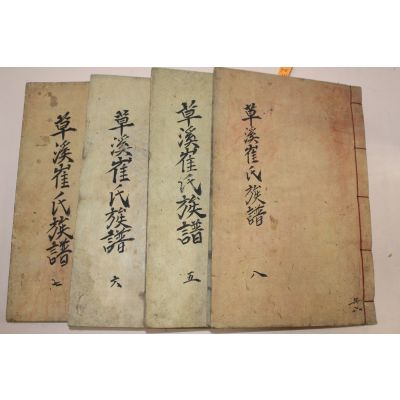 草溪崔氏族譜
八
草溪崔氏族譜
五
草溪崔氏族譜
六
草溪崔氏族譜
七